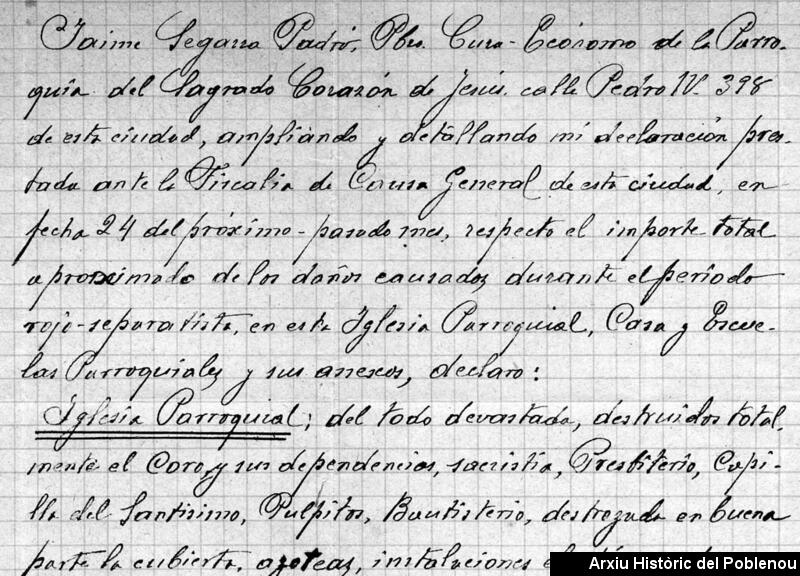 Jaime Segarra Padró, Pbro. Cura-Ecónomo de la Parro-
quia del Sagrado Corazón de Jesús. calle Pedro IV. 398
de esta ciudad, ampliando y detallando mi declaración pres-
tada ante la Fiscalia de Causa General de esta ciudad, en
fecha 24 del próximo-pasado mes, respecto el importe total
aproximado de los daños causados durante el período
rojo-separatista, en esta Iglesia Parroquial, Casa y Escue-
las Parroquiales y sus anexos, declaro:
Iglesia Parroquial; del todo devastada, destruidos total,
mente el Coro, y sus dependencias, sacristia, Presbiterio, Capi-
lla del Santisimo, Pulpitos, Bautisterio, destrozada en buena
parte la cubierta, azoteas, instalaciones
Arxiu Històric del Poblenou